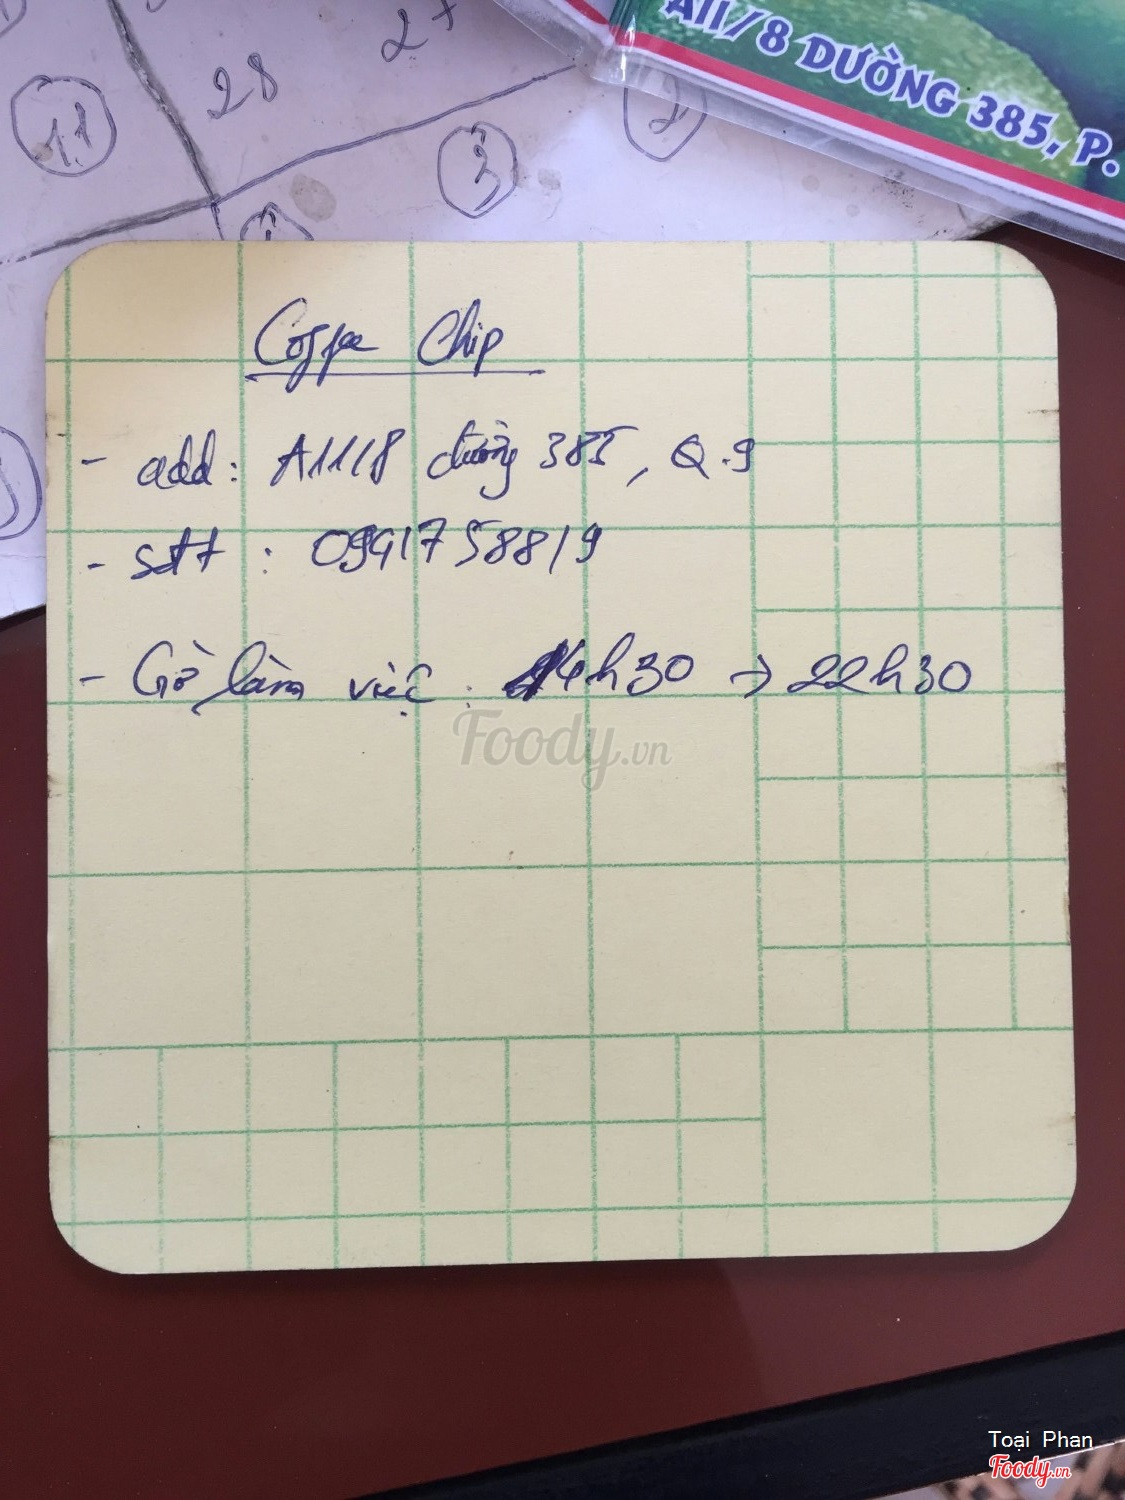 28
27
11
3
2
A11/8 ĐƯỜNG 385, P.
Coffee Chip
- add: A11/8 đường 385, Q.9
- sđt : 0941758819
- Giờ làm việc : 14h30 → 22h30
Foody.vn
Toại Phan
Foody.vn